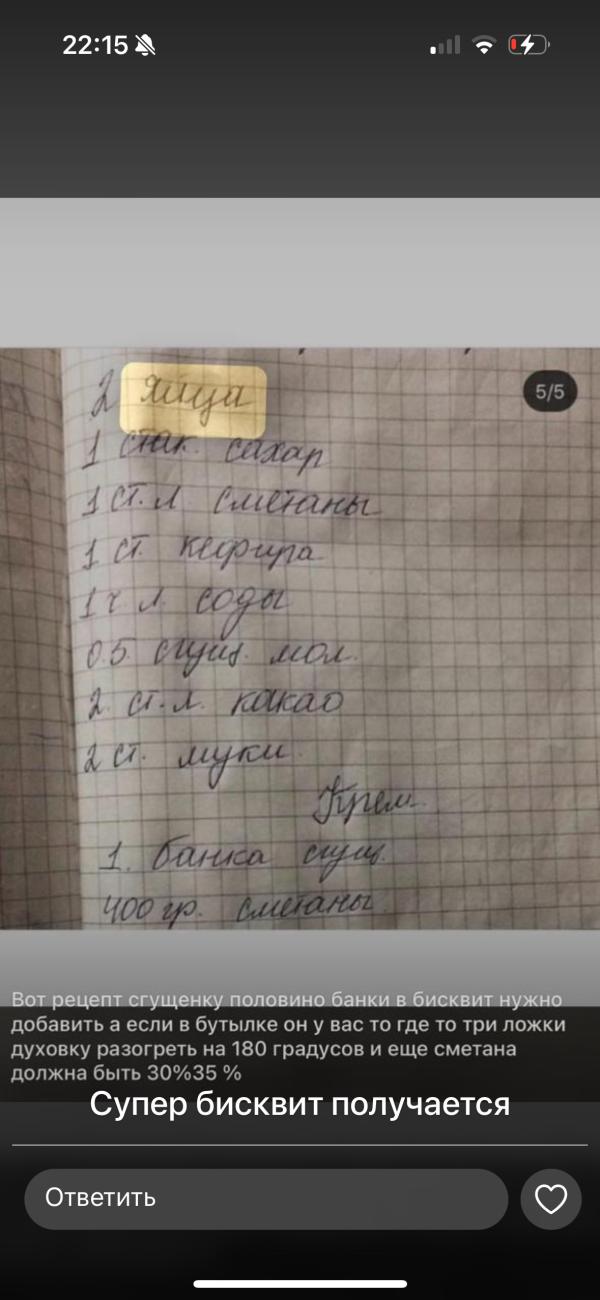 22:15
5/5
2 яйца
1 стак. сахар
1 ст.л сметаны
1 ст. кефира
1 ч л. соды
0.5 сгущ. мол.
2 ст.л. какао
2 ст. муки
Крем
1. банка сгущ.
400 гр. сметаны
Вот рецепт сгущенку половино банки в бисквит нужно
добавить а если в бутылке он у вас то где то три ложки
духовку разогреть на 180 градусов и еще сметана
должна быть 30%35 %
Супер бисквит получается
Ответить